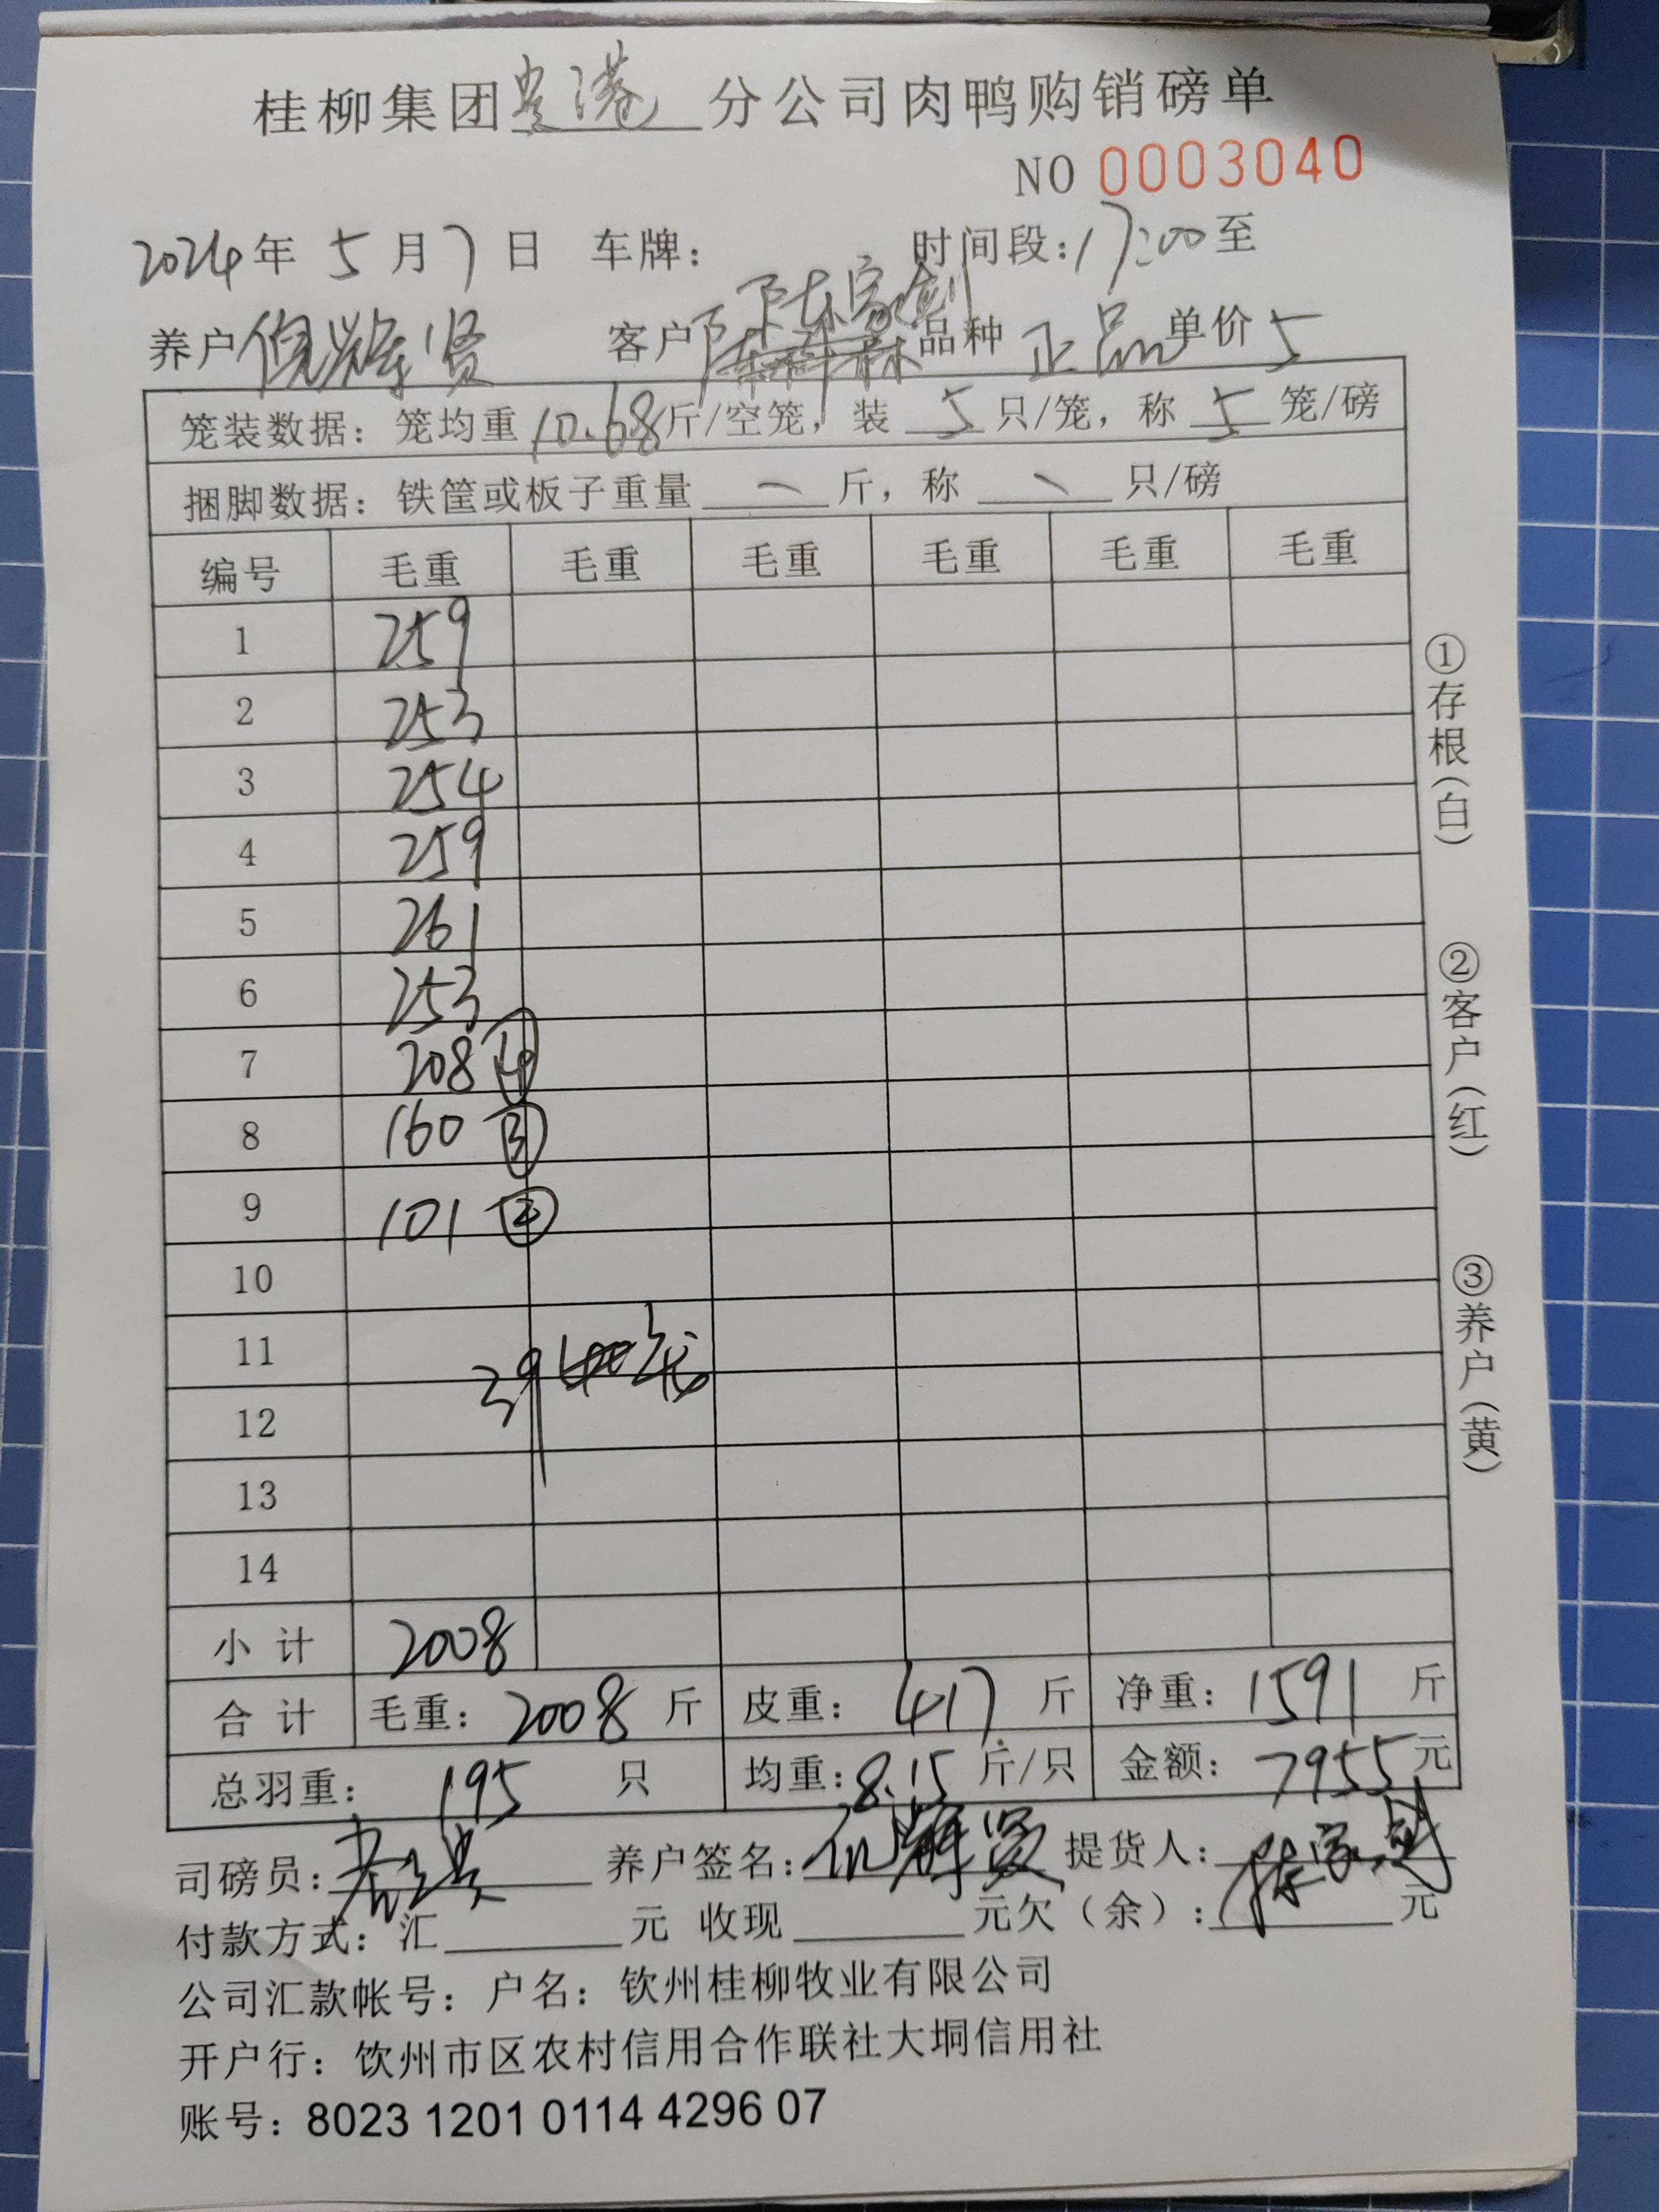 桂柳集团贵港分公司肉鸭购销磅单
NO 0003040
2024年 5月7日 车牌： 时间段：17:00至
陈家剑
养户倪辉贤 客户 品种 正品 单价 5
笼装数据：笼均重10.68斤/空笼，装 5 只/笼，称 5 笼/磅
捆脚数据：铁筐或板子重量 一 斤，称 、 只/磅
编号 毛重 毛重 毛重 毛重 毛重 毛重
1 259
2 253
3 254
4 259
5 261
6 253
7 208 ④
8 160 ③
9 101 ②
10
11
39 笼
12
13
14
小计 2008
合计 毛重：2008斤 皮重：417斤 净重：1591斤
总羽重：195 只 均重：8.15斤/只 金额：7955元
司磅员： 养户签名：倪辉贤 提货人：陈家剑
付款方式：汇 元 收现 元欠（余）： 元
公司汇款帐号：户名：钦州桂柳牧业有限公司
开户行：饮州市区农村信用合作联社大垌信用社
账号：8023 1201 0114 4296 07
①存根（白）
②客户（红）
③养户（黄）